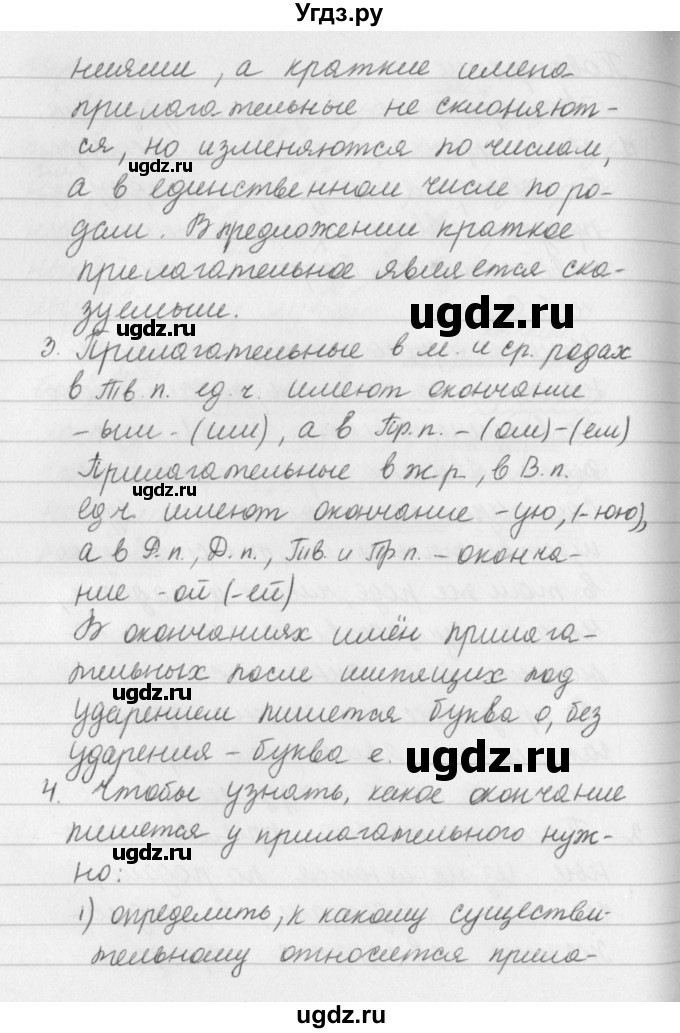 Угдз.ру
ниями, а краткие имена
прилагательные не склоняют-
ся, но изменяются по числам,
ugdz.ru
а в единственном числе по ро-
дам. В предложении краткое
прилагательное является ска-
зуемым.
ugdz.ru
ugdz.ru
3. Прилагательные в м. и ср. родах
в Тв.п. ед.ч. имеют окончание
-ым-(им), а в Пр.п. -(ом)-(ем)
Прилагательные в ж.р, в В.п.
ugdz.ru
ед.ч. имеют окончание -ую, (-юю),
а в Р.п., Д.п., Тв. и Пр.п. - оконча-
ние -ой (-ей)
В окончаниях имён прилага-
тельных после шипящих под
ugdz.ru
ударением пишется буква о, без
ударения - буква е.
ugdz.ru
4. Чтобы узнать, какое окончание
пишется у прилагательного нуж-
ugdz.ru
но:
1) определить, к какому существи-
тельному относится прила-
ugdz.ru